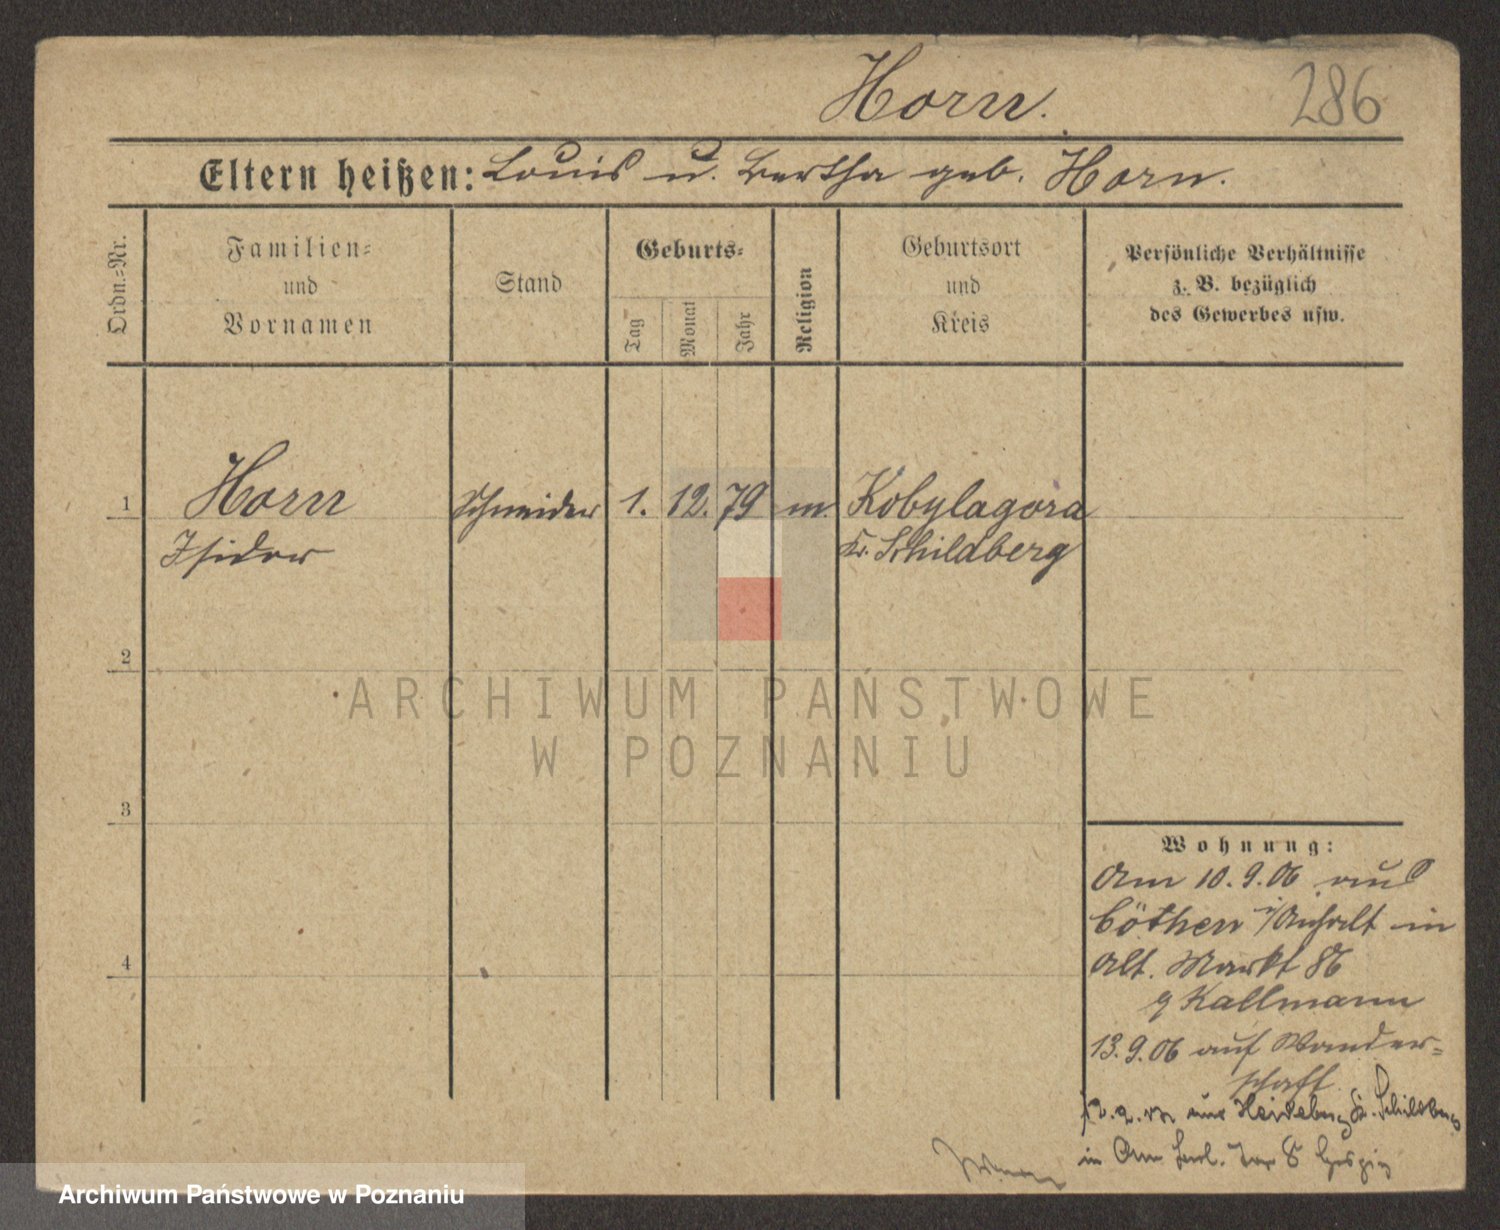 Horn.
286
Eltern heißen: Louis u. Bertha geb. Horn.
Ordn.-Nr.
Familien-
und
Vornamen
Stand
Geburts-
Tag
Monat
Jahr
Religion
Geburtsort
und
Kreis
Persönliche Verhältnisse
z. B. bezüglich
des Gewerbes usw.
1
Horn
Isidor
Schneider
1. 12. 79
m.
Kobylagora
Kr. Schildberg
2
3
4
Wohnung:
Am 10.9.06 aus
Cöthen i/Anhalt in
Alt. Markt 86
Kallmann
13.9.06 auf Wander-
schaft.
aus Schildberg
in Am
ARCHIWUM PAŃSTWOWE
W POZNANIU
Archiwum Państwowe w Poznaniu